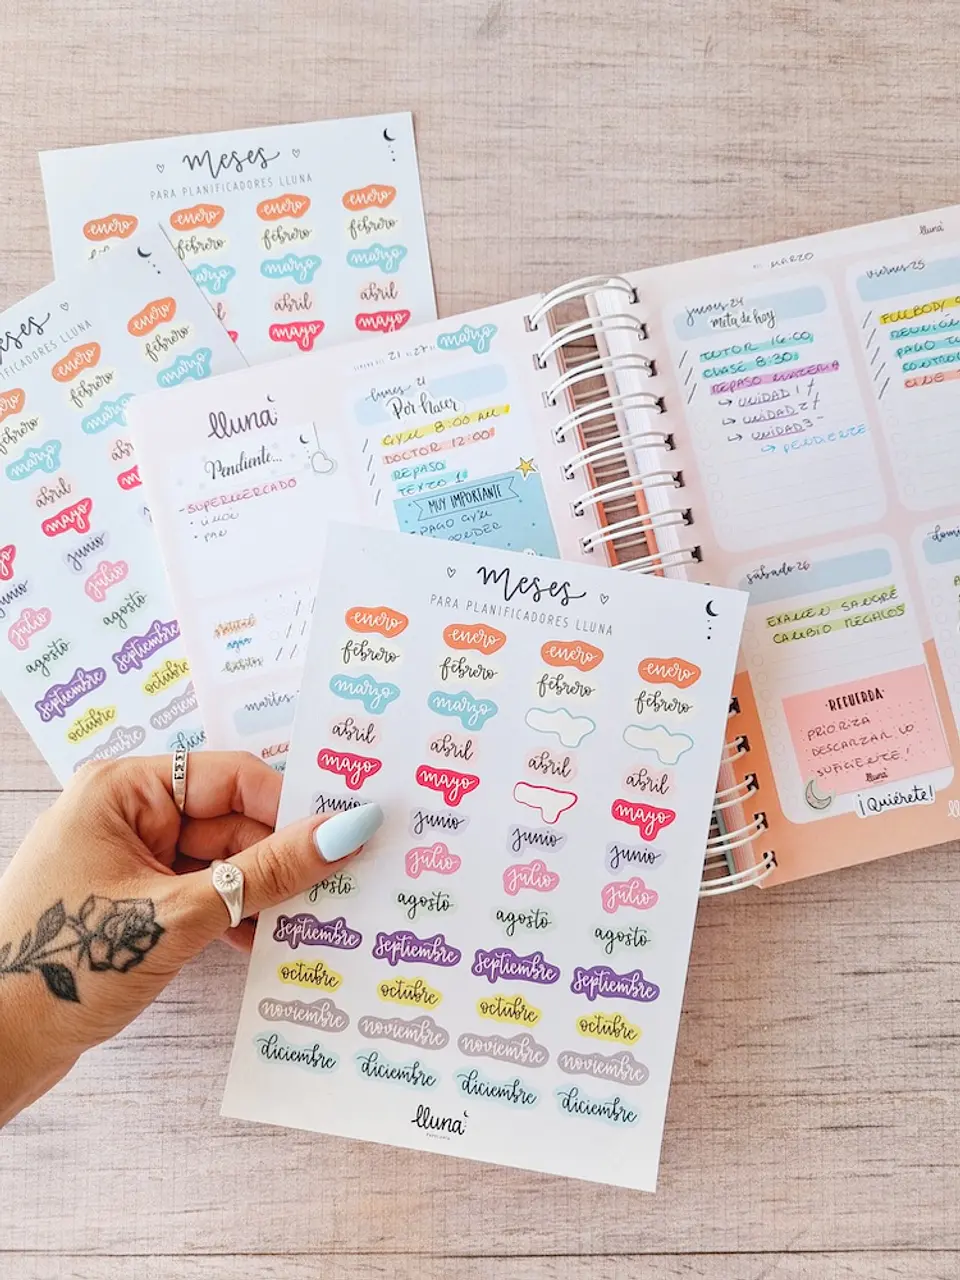 meses
PARA PLANIFICADORES LLUNA
enero enero enero enero
febrero febrero febrero
marzo marzo marzo
abril abril
mayo mayo
meses
PLANIFICADORES LLUNA
enero enero
febrero febrero febrero
marzo marzo marzo
abril
mayo
junio
julio julio
agosto agosto
septiembre septiembre
octubre octubre
noviembre
lluna
Pendiente...
-SUPERMERCADO
• PAN
martes
21 27
marzo
lunes 21
Por hacer
GYM 8:00 AM
DOCTOR 12:00
REPASO
TEXTO 1
MUY IMPORTANTE
PAGO GYM
MARZO
lluna
jueves 24
meta de hoy
TUTOR 16:00
CLASE 8:30
→ UNIDAD 1
→ UNIDAD 2
→ UNIDAD 3
→ PENDIENTE
viernes 25
FULLBODY
REUNIÓN
PAGO
sábado 26
EXAMEN SANGRE
CAMBIO REGALOS
·RECUERDA·
PRIORIZA
DESCANZAR LO
SUFICIENTE!
lluna
¡Quiérete!
meses
PARA PLANIFICADORES LLUNA
enero enero enero enero
febrero febrero febrero febrero
marzo marzo
abril abril abril abril
mayo mayo mayo
junio junio junio junio
julio julio julio
gosto agosto agosto agosto
septiembre septiembre septiembre septiembre
octubre octubre octubre octubre
noviembre noviembre noviembre noviembre
diciembre diciembre diciembre diciembre
lluna